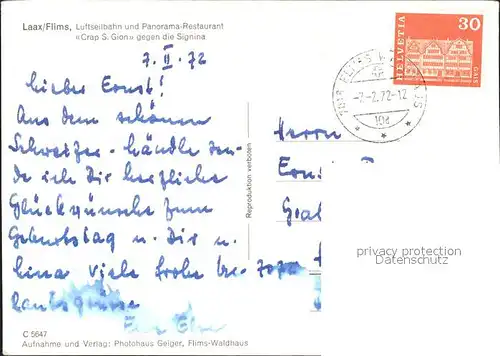 Laax/Flims, Luftseilbahn und Panorama-Restaurant
«Crap S. Gion» gegen die Signina
7. II. 72
Lieber Ernst!
Aus dem schönen
Schweizer-händle sen-
de ich Dir herzliche
Glückwünsche zum
Geburtstag u. Dir u.
Lina viele frohe
Reproduktion verboten
HELVETIA
30
GAIS
-7.-2.72-12
Herrn
privacy protection
Datenschutz
C 5647
Aufnahme und Verlag: Photohaus Geiger, Flims-Waldhaus